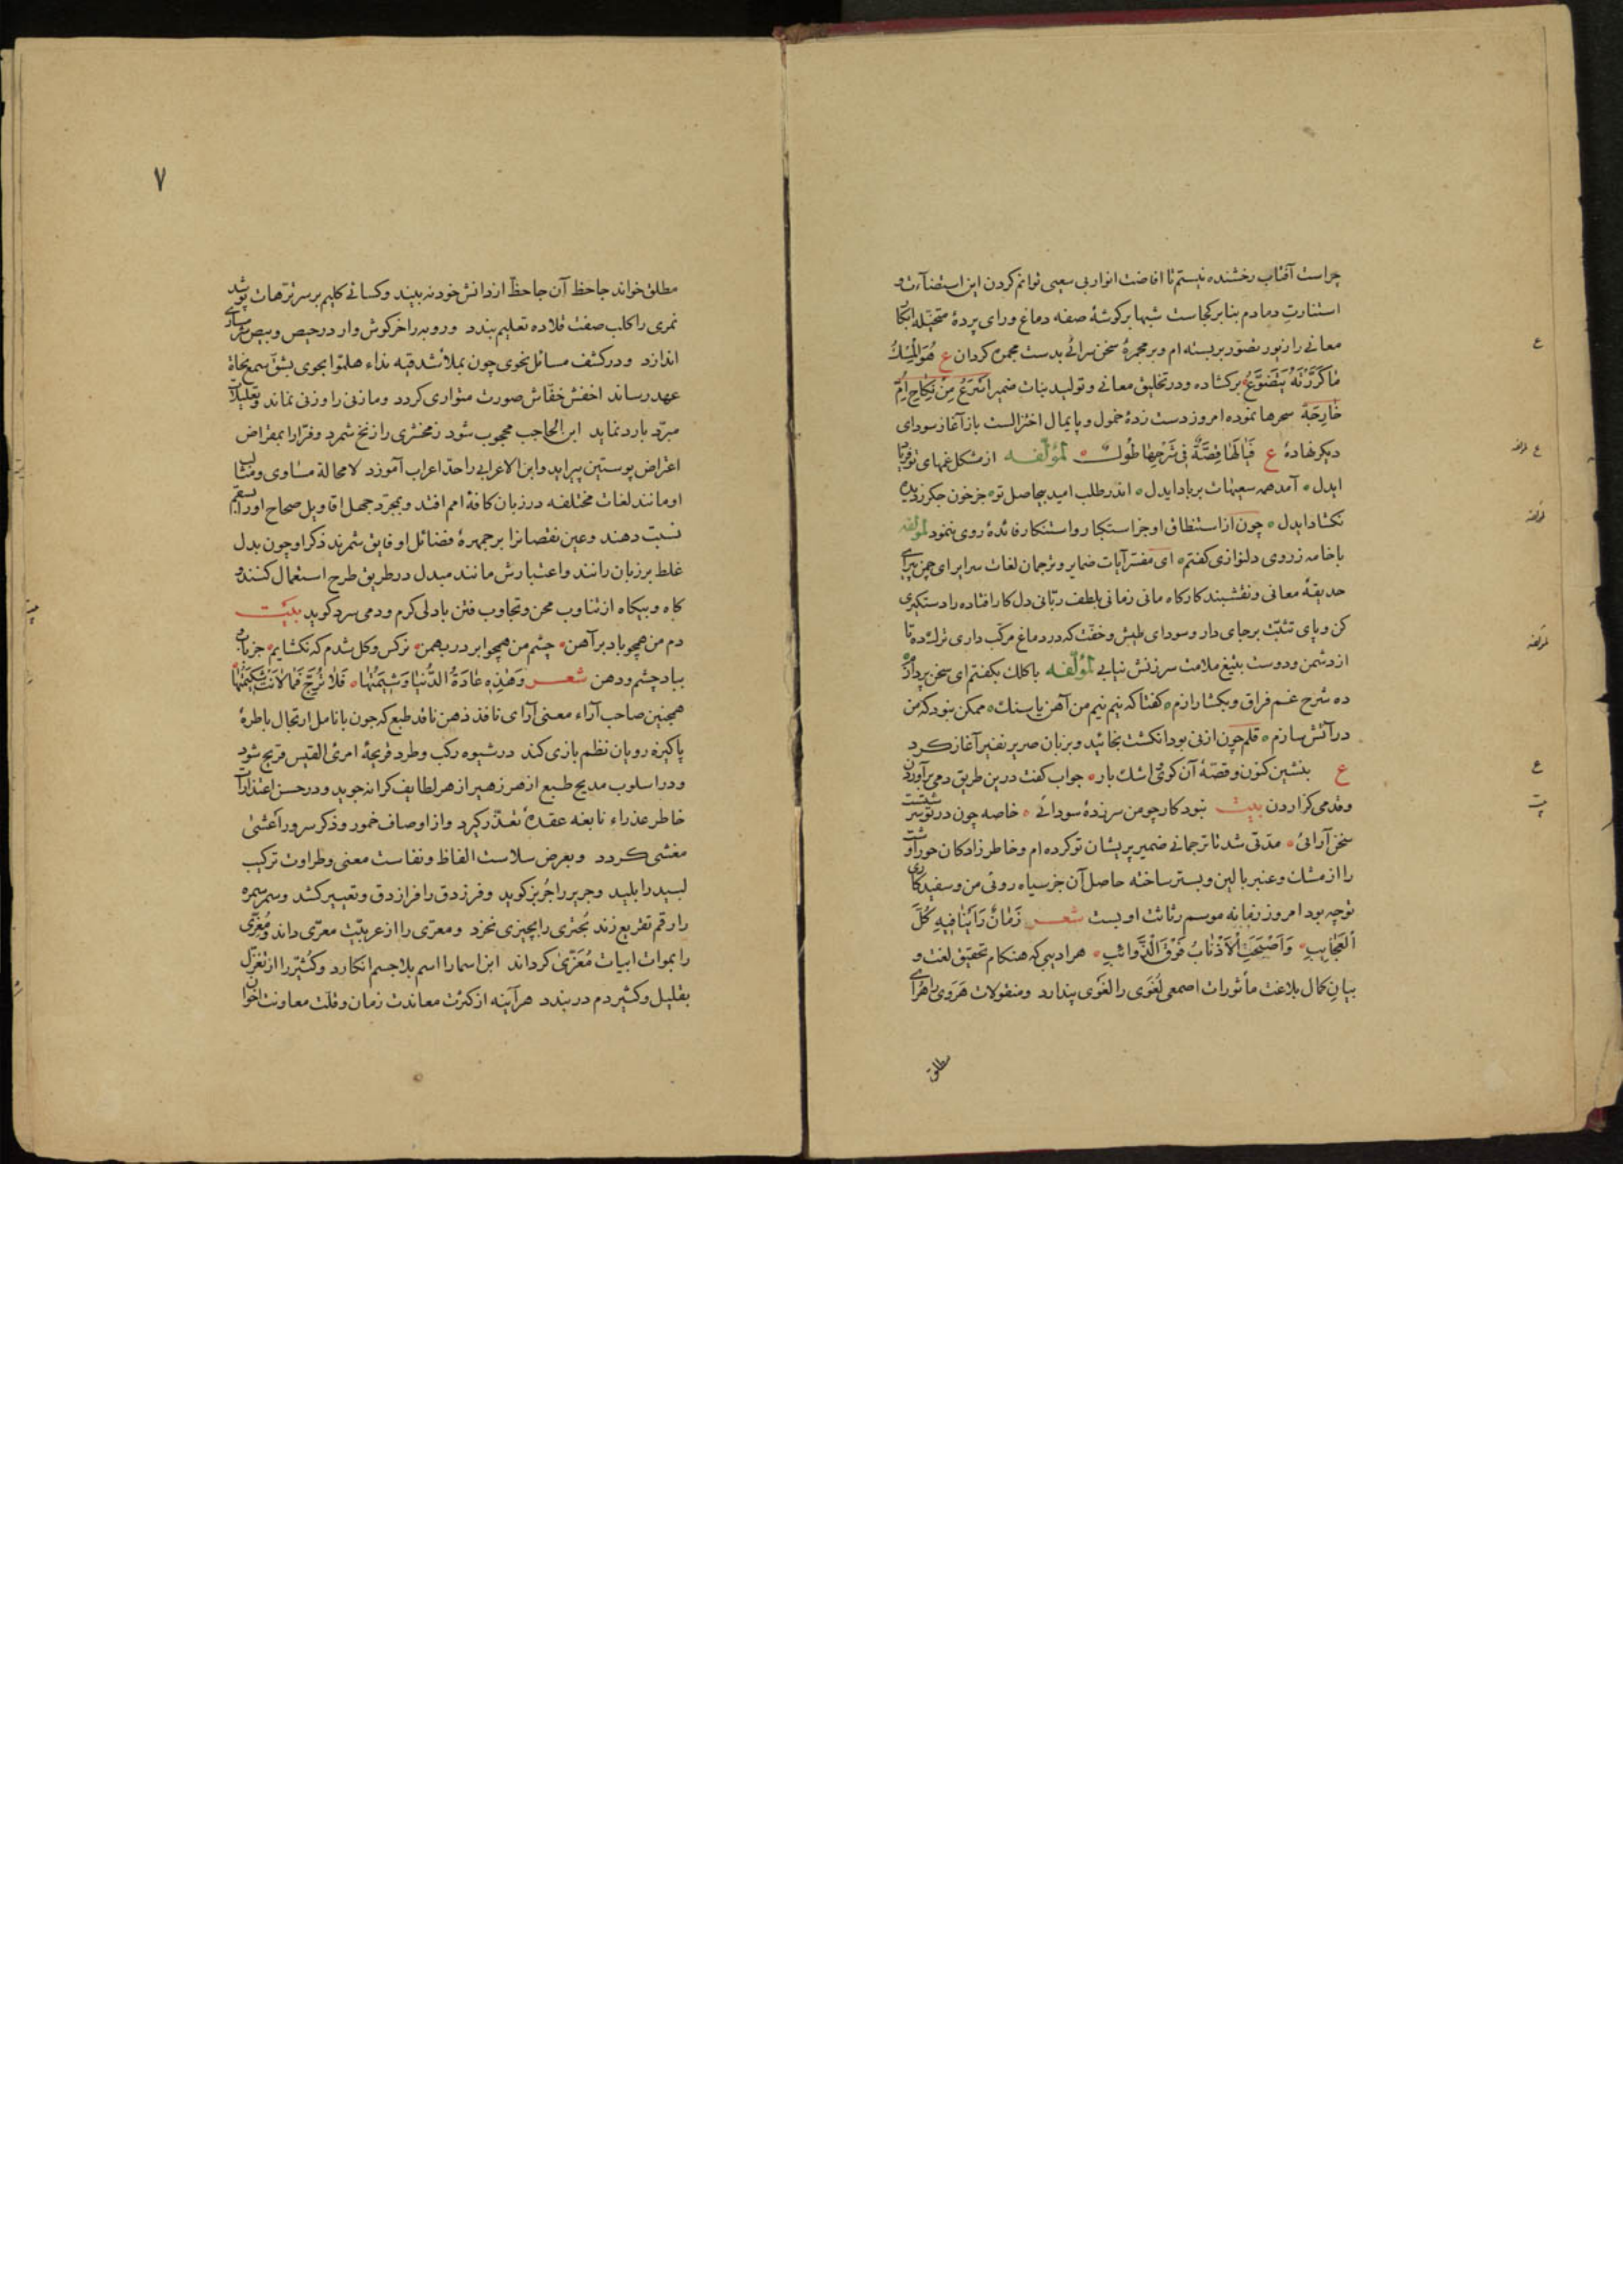 چراست آفتاب رخشنده نیستم تا افاضت انوار بی سعیی توانم کردن این استضآءت و
استنارتِ دمادم بنا بر کجاست شبها بر کوشهٔ صفه دماغ ورای پردهٔ متخیّله ابکا
معانی را زیور تصوّر بر بسته ام و بر مجمرهٔ سخن سرائی بدست مجمره کردان ع هُوَ الْمِسْكُ
مٰا كَرَّرْتَهُ يَتَضَوَّعُ بر کشاده و در تخلیق معانی و تولید بنات ضمیر اَسْرَعُ مِنْ نِكٰاحِ اُمِّ
خٰارِجَة سحرها نموده امروز دست زدهٔ خمول و پایمال اختزالست باز آغاز سودای
دیکر نهادهٔ ع فَيٰالَهٰا قِصَّةً فِى شَرْحِهٰا طُولٌ لمؤلّفه از مشکل غمهای تو فریا
ایدل آمد همه سعیهات بر باد ایدل اندر طلب امید بیحاصل تو جز خون جکر ز دیده
نکشاد ایدل چون از استنطاق او جز استکبار و استنکار فائدهٔ روی ننمود لمؤلفه
با خامه ز روی دلنوازی کفتم ای مفسّر آیات ضمایر و ترجمان لغات سرایر ای چمن پیرای
حدیقهٔ معانی و نقشبند کارکاه مانی زمانی بلطف ربّانی دل کار افتاده را دستکیری
کن و پای تثبّت بر جای دار و سودای طیش و خفّت که در دماغ مرکّب داری ترك ده تا
از دشمن و دوست بتیغ ملامت سرزنش نیابی لمؤلّفه با کلك بکفتم ای سخن پرداز
ده شرح غم فراق و بکشا رازم کفتا که نیم نیم من آهن یا سنك ممکن نبود که من
در آتش سازم قلم چون از نی بود انکشت بخائید و بزبان صریر نفیر آغاز کرد
ع بنشین کنون و قصّهٔ آن کوی اشك بار جواب کفت درین طریق دمی بر آوردن
و قدمی کزاردن بیت نبود کار چو من سرزدهٔ سودائی خاصه چون در تو سر شیفت
سخن آرائی مدّتی شد تا ترجمانی ضمیر پریشان تو کرده ام و خاطر زادکان حوراوشت
را از مشك و عنبر بالین و بستر ساخته حاصل آن جز سیاه روئی من و سفید کاری
توچه بود امروز زمانه موسم رثائت اوبست شعر زَمٰانٌ رَأَيْنٰا فِيهِ كُلَّ
الْعَجٰايِبِ وَاَصْبَحَتِ الْاَذْنٰابُ فَوْقَ الذَّوائبِ هر ادیبی که هنکام تحقیق لغت و
بیانِ کمال بلاغت مأثورات اصمعی لُغَوَی را لَغْوَی پندارد و منقولات هَرَوی را هُرای
مطلق
۷
مطلق خواند جاحظ آن جا حظّ از دانش خود نه بیند و کسائی کلیم بر سر ترّهات پوشد
نمری را کلب صفت قلاده تعلیم بندد و روبه را خرکوش وار در حیص و بیص
اندازد و در کشف مسائل نحوی چون بملأ شدقیه نداء هلمّوا بحوی بشقّ سمع نحاة
عهد رساند اخفش خفّاش صورت متواری کردد و مازنی را وزنی نماند و تعلیلات
مبرّد بارد نماید ابن الحاجب محجوب شود زمخشری را زنخ شمرد و فرّا را بمقراض
اعتراض پوستین پیراید و ابن الاعرابی را حدّ اعراب آموزد لا محالة مساوی و مثالب
او مانند لغات مختلفه در زبان کافهٔ امم افتد و بمجرّد جهل اقاویل صحاح او را بسقم
نسبت دهند و عین نقصانرا بر جمهرهٔ فضائل او فایق شمرند ذکر او چون بدل
غلط بر زبان رانند و اعتبارش مانند مبدل در طریق طرح استعمال کنند و
کاه و بیکاه از تناوب محن و تجاوب فتن با دلی کرم و دمی سرد کوید بیت
دم من همچو باد بر آهن چشم من همچو ابر در بهمن نرکس و کل شدم که نکشایم جز بآ
بباد چشم و دهن شعر وَهٰذِهِ عٰادَةُ الدُّنْيٰا وَشِيمَتُهٰا فَلاٰ تُرَجِّ فَمٰا لاٰنَتْ شَكِيمَتُهٰا
همچنین صاحب آراء معنی آرای نافذ ذهن ناقد طبع که چون با نامل ارتجال با طرهٔ
پاکیزه رویان نظم بازی کند در شیوه رکب و طرد قریحهٔ امرئ القیس قریح شود
و در اسلوب مدیح طبع ازهر زهیر از هر لطایف کرانه جوید و در حسن اعتذارات
خاطر عذراء نابغه عقدهٔ تعذّر کیرد و از اوصاف خمور و ذکر سرور اَعشیٰ
مغشی کردد و بعرض سلاست الفاظ و نفاست معنی و طراوت ترکیب
لبید را بلید و جریر را جُربز کوید و فرزدق را فرا زدق و تعییر کشد و سمر سمره
را رقم تقریع زند بُحتری را بچیزی نخرد و معرّی را از عربیّت معرّی داند و مُعزّی
را بموات ابیات مُعَزّیٰ کرداند ابن اسما را اسم بلا جسم انکارد و کُثیّر را از تغزّل
بقلیل و کثیر دم در بندد هر آینه از کثرت معاندت زمان و قلّت معاونت اخوان